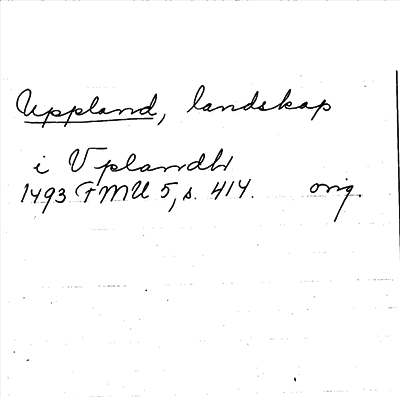 Uppland, landskap
i Vplandh
1493 FMU 5, s. 414. orig.